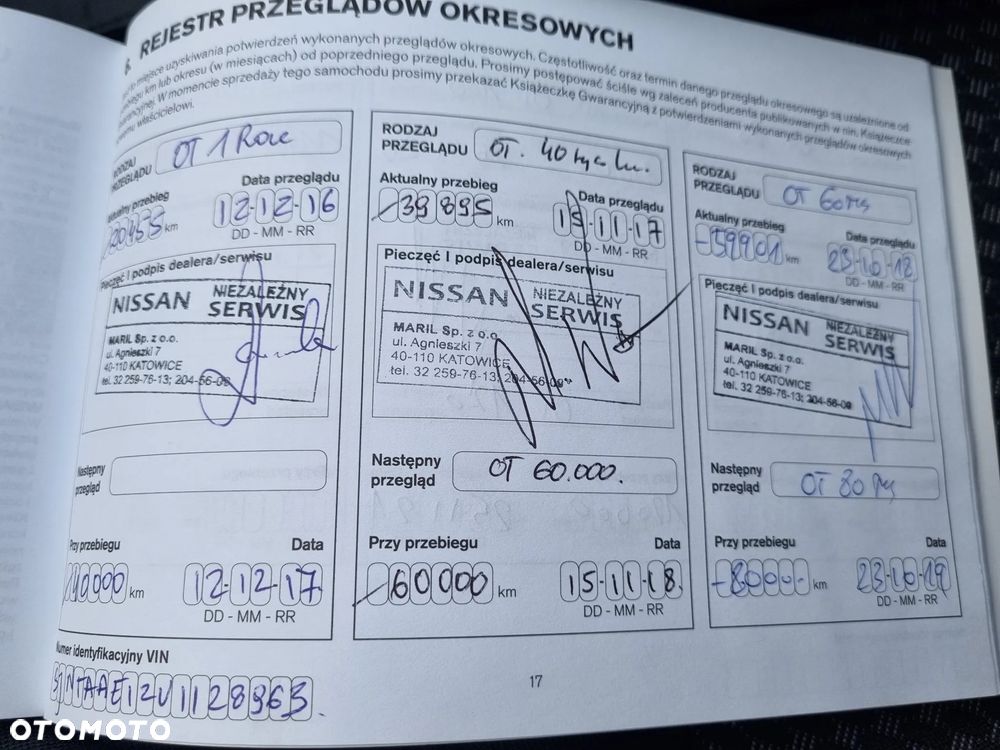 REJESTR PRZEGLĄDÓW OKRESOWYCH
to miejsce uzyskiwania potwierdzeń wykonanych przeglądów okresowych. Częstotliwość oraz termin danego przeglądu okresowego są uzależnione od
km lub okresu (w miesiącach) od poprzedniego przeglądu. Prosimy postępować ściśle wg zaleceń producenta publikowanych w nin. Książeczce
W momencie sprzedaży tego samochodu prosimy przekazać Książeczkę Gwarancyjną z potwierdzeniami wykonanych przeglądów okresowych
właścicielowi.
RODZAJ
PRZEGLĄDU
OT 1 Roc
Aktualny przebieg
Data przeglądu
20455 km
12-12-16
DD - MM - RR
Pieczęć I podpis dealera/serwisu
NISSAN NIEZALEŻNY
SERWIS
MARIL Sp. z o.o.
ul. Agnieszki 7
40-110 KATOWICE
tel. 32 259-76-13; 204-56-09
Następny
przegląd
Przy przebiegu
Data
40000 km
12-12-17
DD - MM - RR
Numer identyfikacyjny VIN
SJNTAAE12U1128963
RODZAJ
PRZEGLĄDU
OT. 40 tyś km.
Aktualny przebieg
Data przeglądu
39895 km
15-11-17
DD - MM - RR
Pieczęć I podpis dealera/serwisu
NISSAN NIEZALEŻNY
SERWIS
MARIL Sp. z o.o.
ul. Agnieszki 7
40-110 KATOWICE
tel. 32 259-76-13; 204-56-09
Następny
przegląd
OT 60.000.
Przy przebiegu
Data
60000 km
15-11-18
DD - MM - RR
RODZAJ
PRZEGLĄDU
OT 60
Aktualny przebieg
Data przeglądu
59901 km
23-10-18
DD - MM - RR
Pieczęć I podpis dealera/serwisu
NISSAN NIEZALEŻNY
SERWIS
MARIL Sp. z o.o.
ul. Agnieszki 7
40-110 KATOWICE
tel. 32 259-76-13; 204-56-09
Następny
przegląd
OT 80
Przy przebiegu
Data
km
23-10-19
DD - MM - RR
17
OTOMOTO